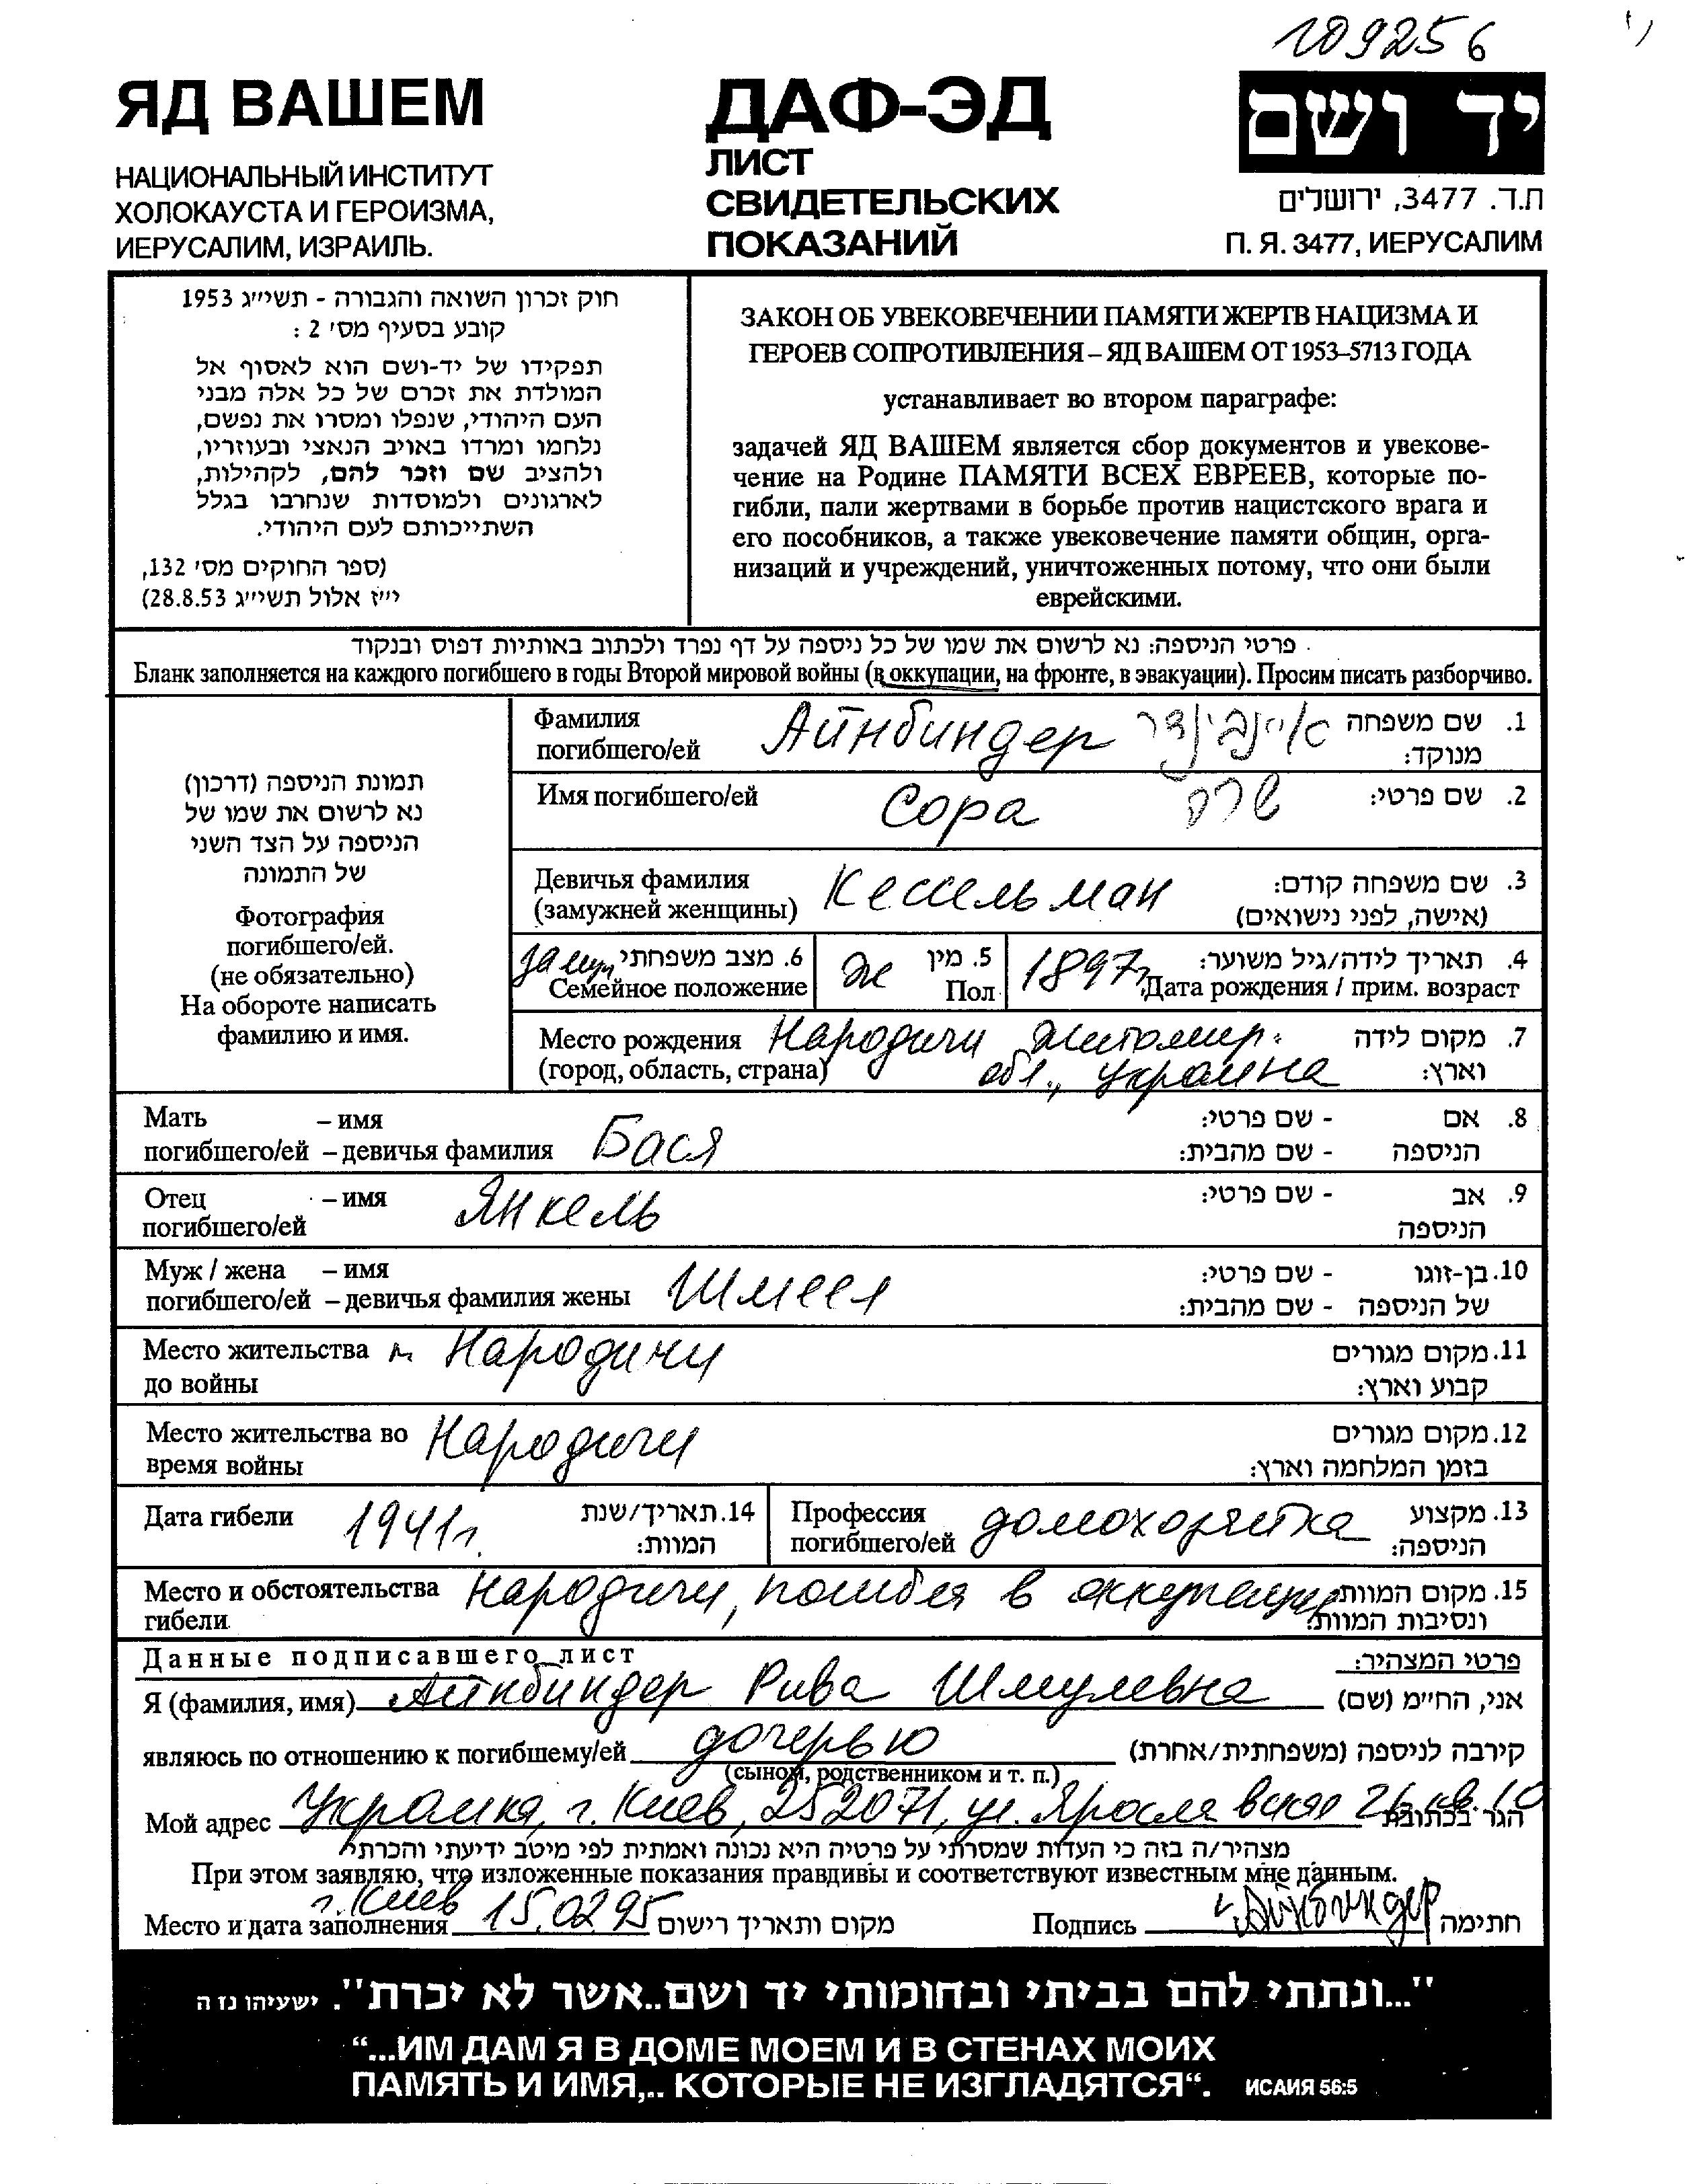 109256
ЯД ВАШЕМ
НАЦИОНАЛЬНЫЙ ИНСТИТУТ
ХОЛОКАУСТА И ГЕРОИЗМА,
ИЕРУСАЛИМ, ИЗРАИЛЬ.
ДАФ-ЭД
ЛИСТ
СВИДЕТЕЛЬСКИХ
ПОКАЗАНИЙ
יד ושם
ת.ד. 3477, ירושלים
П. Я. 3477, ИЕРУСАЛИМ
חוק זכרון השואה והגבורה - תשי״ג 1953
קובע בסעיף מס׳ 2 :
תפקידו של יד-ושם הוא לאסוף אל
המולדת את זכרם של כל אלה מבני
העם היהודי, שנפלו ומסרו את נפשם,
נלחמו ומרדו באויב הנאצי ובעוזריו,
ולהציב שם וזכר להם, לקהילות,
לארגונים ולמוסדות שנחרבו בגלל
השתייכותם לעם היהודי.
(ספר החוקים מס׳ 132,
י״ז אלול תשי״ג 28.8.53)
ЗАКОН ОБ УВЕКОВЕЧЕНИИ ПАМЯТИ ЖЕРТВ НАЦИЗМА И
ГЕРОЕВ СОПРОТИВЛЕНИЯ – ЯД ВАШЕМ ОТ 1953–5713 ГОДА
устанавливает во втором параграфе:
задачей ЯД ВАШЕМ является сбор документов и увекове-
чение на Родине ПАМЯТИ ВСЕХ ЕВРЕЕВ, которые по-
гибли, пали жертвами в борьбе против нацистского врага и
его пособников, а также увековечение памяти общин, орга-
низаций и учреждений, уничтоженных потому, что они были
еврейскими.
פרטי הניספה: נא לרשום את שמו של כל ניספה על דף נפרד ולכתוב באותיות דפוס ובנקוד
Бланк заполняется на каждого погибшего в годы Второй мировой войны (в оккупации, на фронте, в эвакуации). Просим писать разборчиво.
תמונת הניספה (דרכון)
נא לרשום את שמו של
הניספה על הצד השני
של התמונה
Фотография
погибшего/ей.
(не обязательно)
На обороте написать
фамилию и имя.
Фамилия погибшего/ей Айнбиндер איינבינדר 1. שם משפחה מנוקד:
Имя погибшего/ей Сора שרה 2. שם פרטי:
Девичья фамилия (замужней женщины) Кессельман 3. שם משפחה קודם: (אישה, לפני נישואים)
замуж 6. מצב משפחתי Семейное положение
ж 5. מין Пол
1897г. 4. תאריך לידה/גיל משוער: Дата рождения / прим. возраст
Место рождения Народичи Житомир. 7. מקום לידה
(город, область, страна) обл., Украина וארץ:
Мать – имя 8. אם - שם פרטי:
погибшего/ей – девичья фамилия Бася הניספה - שם מהבית:
Отец – имя Янкель 9. אב - שם פרטי:
погибшего/ей הניספה
Муж / жена – имя 10. בן-זוגו - שם פרטי:
погибшего/ей – девичья фамилия жены Шмеел של הניספה - שם מהבית:
Место жительства м. Народичи 11. מקום מגורים
до войны קבוע וארץ:
Место жительства во Народичи 12. מקום מגורים
время войны בזמן המלחמה וארץ:
Дата гибели 1941г. 14. תאריך/שנת המוות:
Профессия погибшего/ей домохозяйка 13. מקצוע הניספה:
Место и обстоятельства Народичи, погибла в оккупации 15. מקום המוות
гибели ונסיבות המוות:
Данные подписавшего лист פרטי המצהיר:
Я (фамилия, имя) Айнбиндер Рива Шмулевна אני, הח״מ (שם)
являюсь по отношению к погибшему/ей дочерью קירבה לניספה (משפחתית/אחרת)
(сыном, родственником и т. п.)
Мой адрес Украина, г. Киев, 252071, ул. Ярославская 26 кв. 10 הגר בכתובת
מצהיר/ה בזה כי העדות שמסרתי על פרטיה היא נכונה ואמתית לפי מיטב ידיעתי והכרתי
При этом заявляю, что изложенные показания правдивы и соответствуют известным мне данным.
Место и дата заполнения г. Киев 15.02.95 מקום ותאריך רישום Подпись Айнбиндер חתימה
"...ונתתי להם בביתי ובחומותי יד ושם..אשר לא יכרת". ישעיהו נז ה
“...ИМ ДАМ Я В ДОМЕ МОЕМ И В СТЕНАХ МОИХ
ПАМЯТЬ И ИМЯ,.. КОТОРЫЕ НЕ ИЗГЛАДЯТСЯ“. ИСАИЯ 56:5